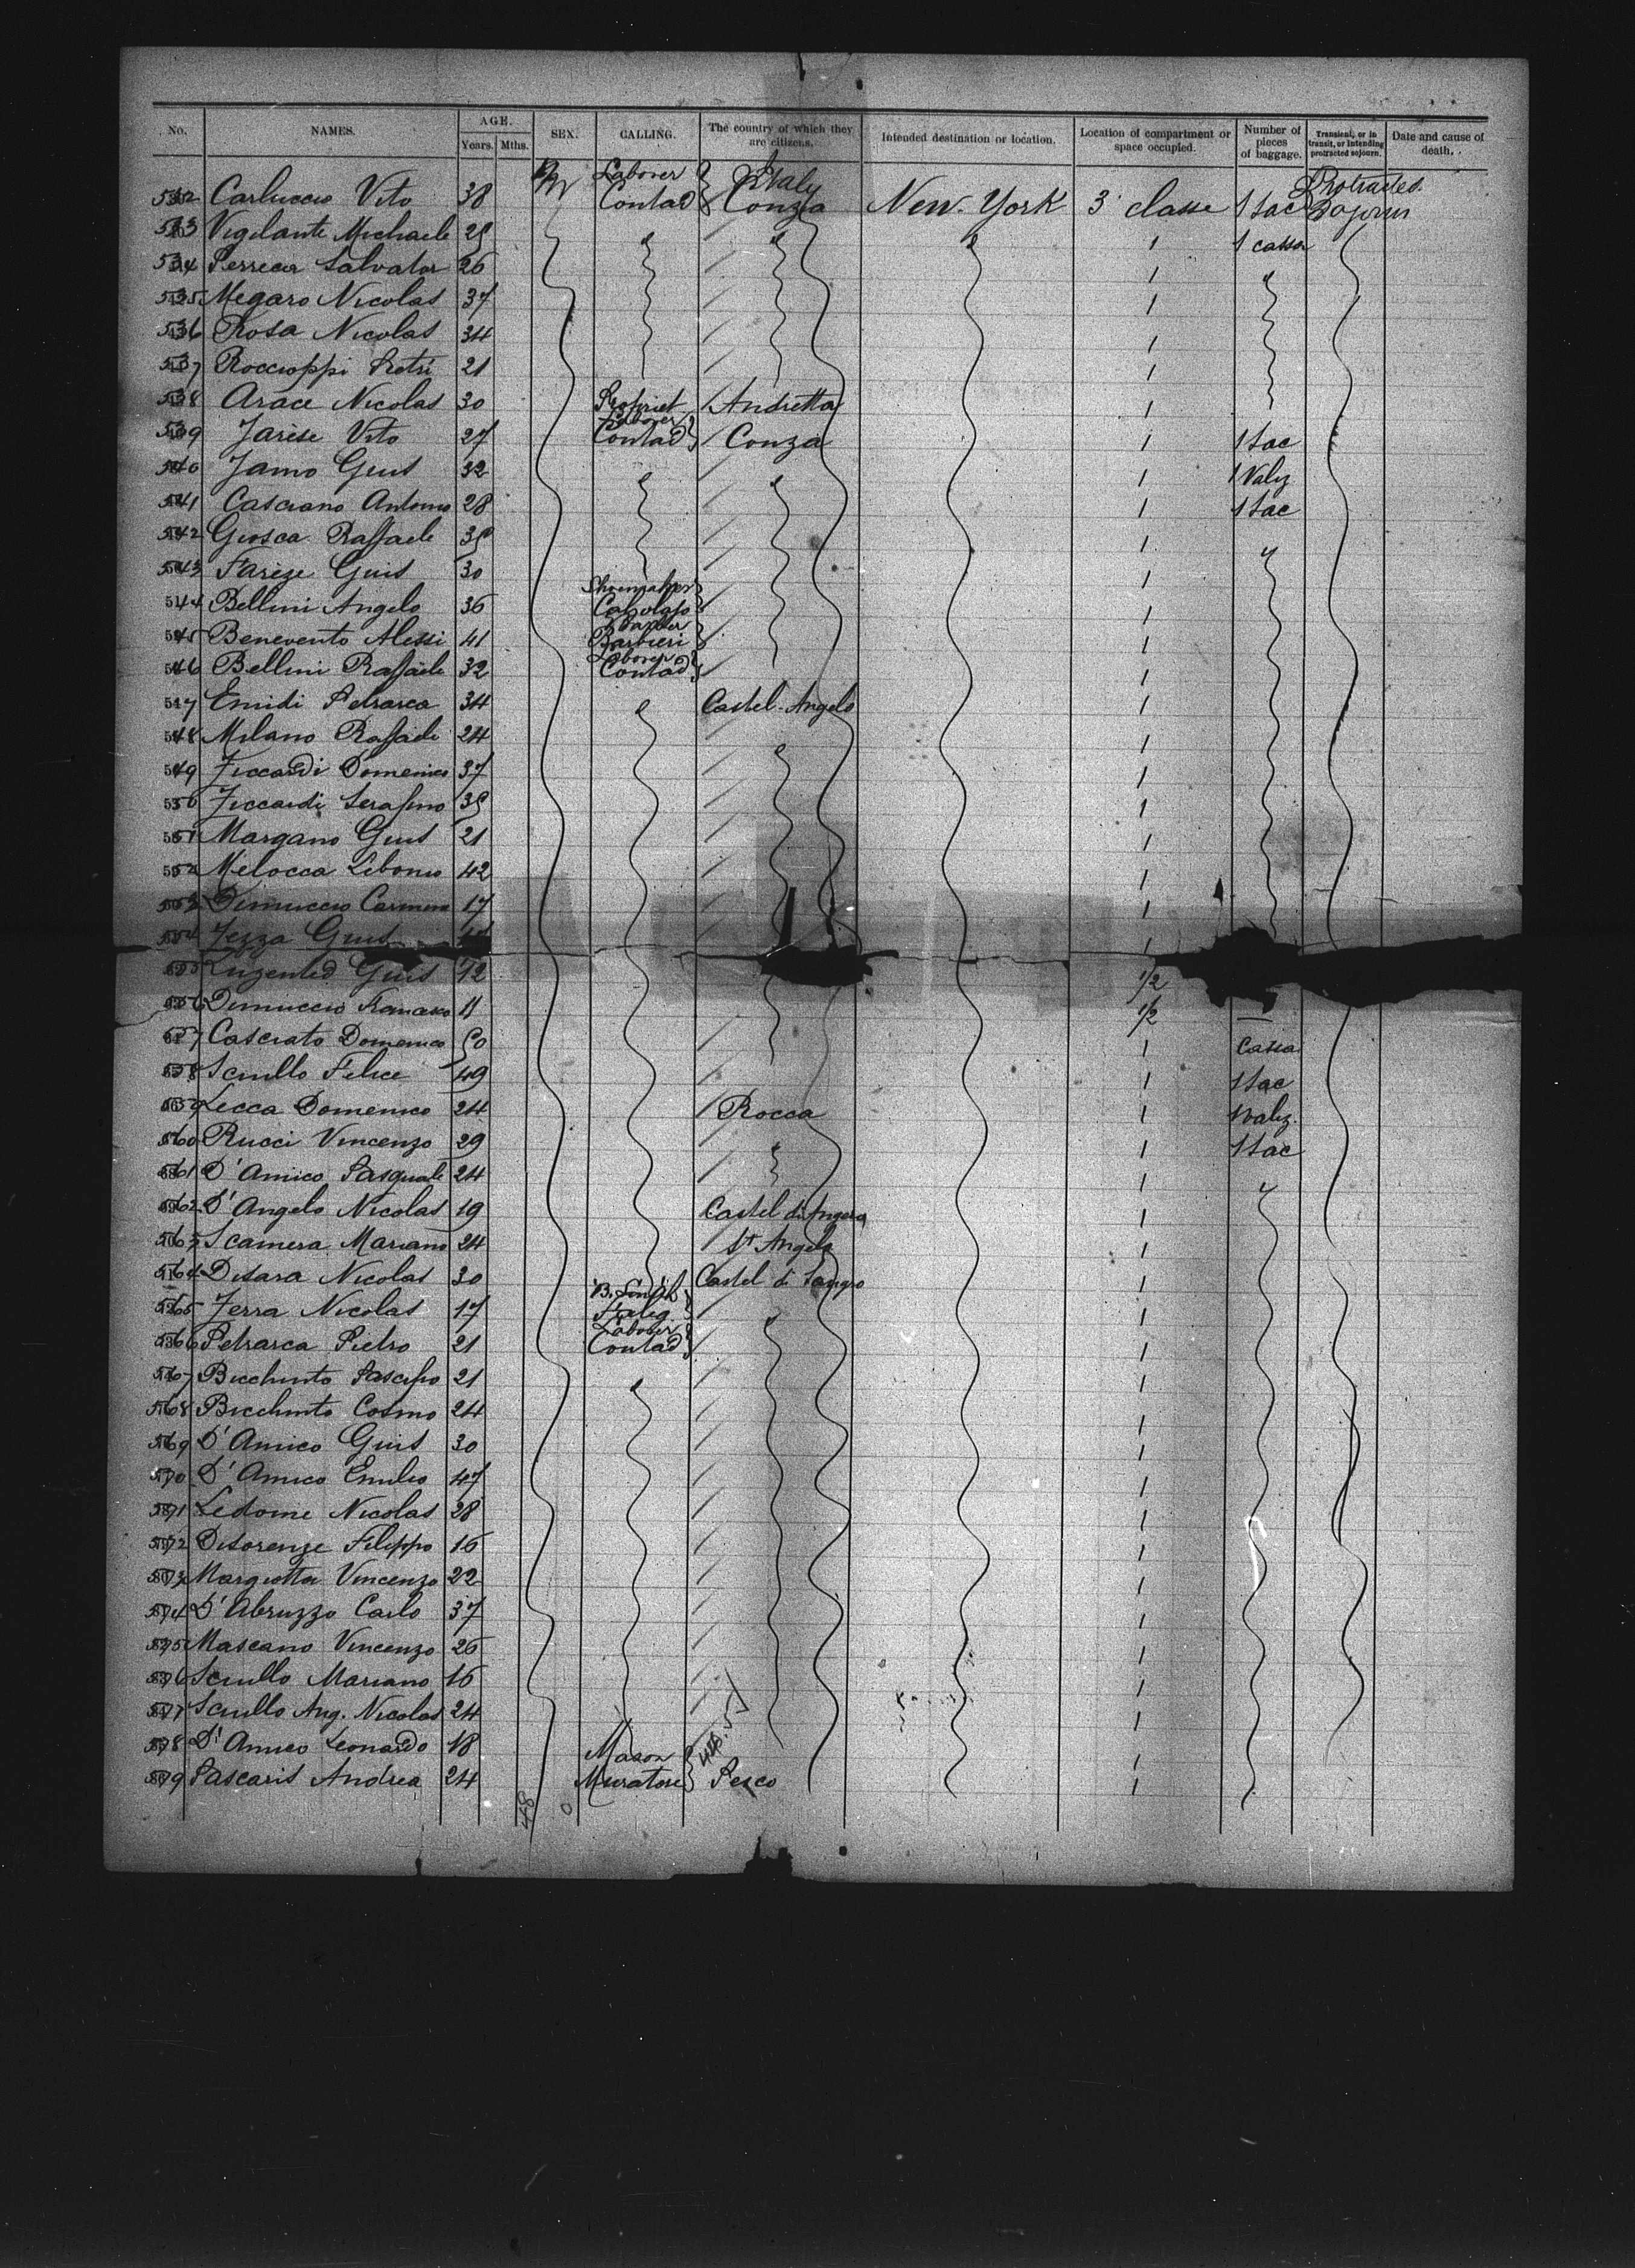 No. NAMES. AGE. Years. Mths. SEX. CALLING. The country of which they are citizens. Intended destination or location. Location of compartment or space occupied. Number of pieces of baggage. Transient, or in transit, or intending protracted sojourn. Date and cause of death.
Laborer Italy Protracted
532 Carluccio Vito 38 M Contad Conza New-York 3 classe 1 Sac Sojourn
533 Vigilante Michaele 29 1 1 cassa
534 Salvator 26 1
535 Megaro Nicolas 37 1
536 Rosa Nicolas 34 1
537 21 1
538 Arace Nicolas 30 Propriet Andretta 1
Laborer
539 Vito 27 Contad Conza 1 1 Sac
540 Gius 32 1 1 Valiz
541 Casciano Antonio 28 1 1 Sac
542 Giosca Raffaele 39 1
543 Farèze Gius 30 1
Shoemaker
544 Bellini Angelo 36 Calzolajo 1
545 Benevento Alessi 41 Barbieri 1
Laborer
546 Bellini Raffaele 32 Contad 1
547 Emidi Petrarca 34 Castel-Angelo 1
548 Milano Raffaele 24 1
549 Ziccardi Domenico 37 1
550 Ziccardi Serafino 39 1
551 Margano Gius 21 1
552 Melocca Libonio 42 1
553 Dinuccio Carmine 17 1
554 Gius 1
555 Gius 12 1/2
556 Dinuccio 11 1/2 —
557 Casciato Domenico 50 1 Cassa
558 Sciullo Felice 49 1 1 Sac
559 Lecca Domenico 24 Rocca 1 1 valiz.
560 Rucci Vincenzo 29 1 1 Sac
561 D'Amico Pasquale 24 1
562 D'Angelo Nicolas 19 Castel di 1
563 Scamera Mariano 24 St Angelo 1
564 Disara Nicolas 30 Castel di Sangro 1
B. Smith
565 Zerra Nicolas 17 1
Laborer
566 Petrarca Pietro 21 Contad 1
567 21 1
568 Cosmo 24 1
569 D'Amico Gius 30 1
570 D'Amico Emilio 47 1
571 Ledome Nicolas 28 1
572 Filippo 16 1
573 Margiotta Vincenzo 22 1
574 D'Abruzzo Carlo 37 1
575 Mascano Vincenzo 26 1
576 Sciullo Mariano 16 1
577 Sciullo Ang. Nicolas 24 1
578 D'Amico Leonardo 18 1
Mason
579 Pascaris Andrea 24 Muratore Pesco 1
48 0